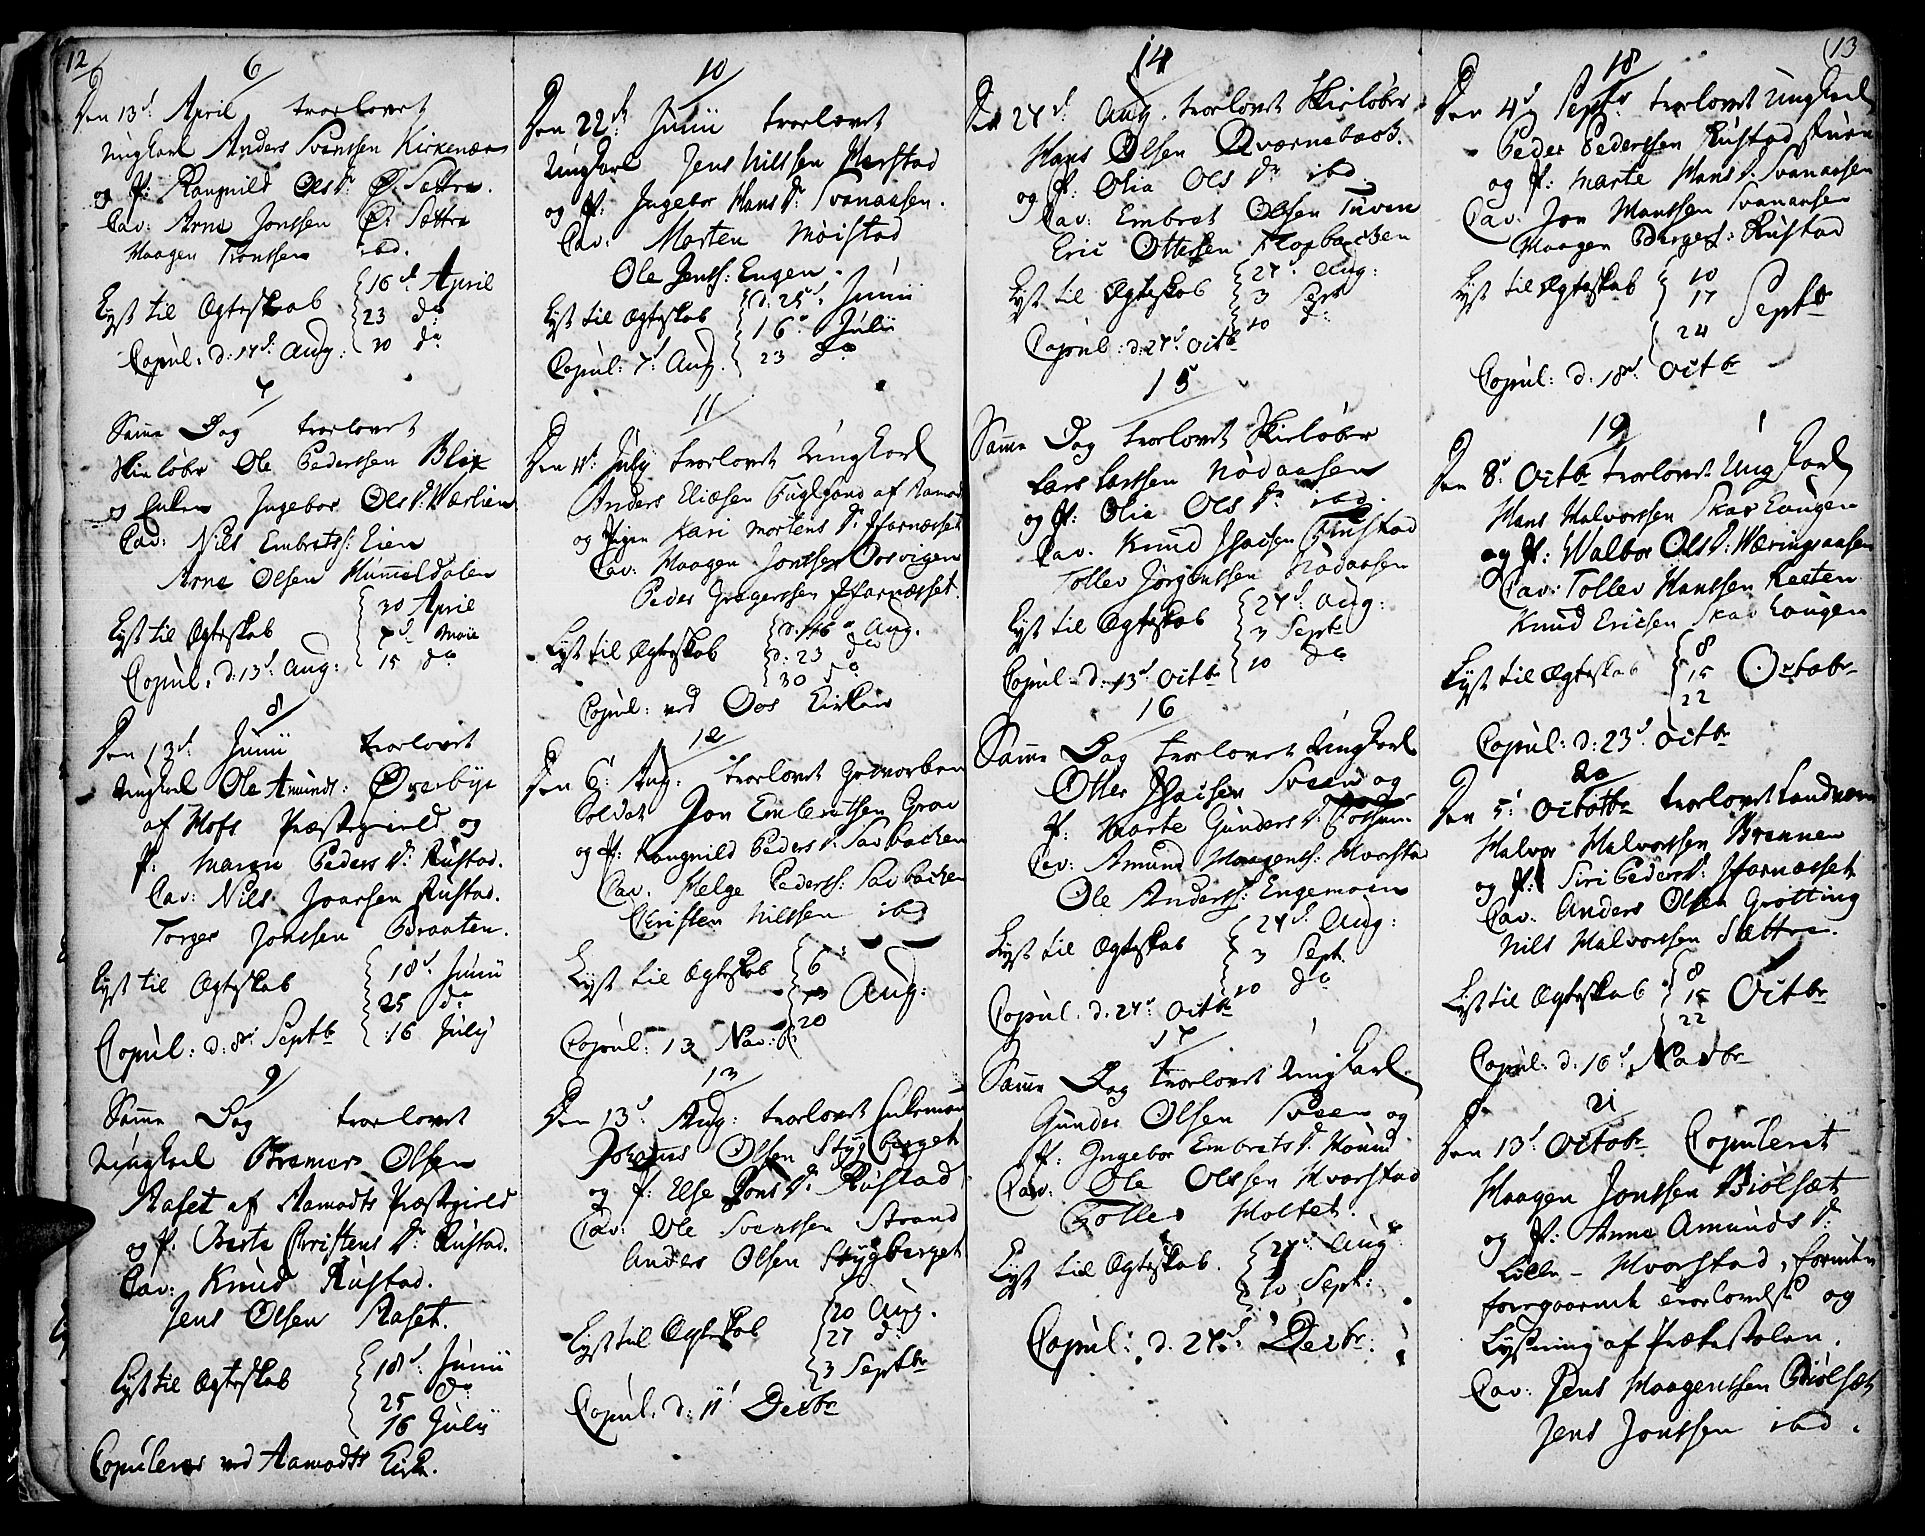 12
6
Den 13d April trorlovet
Ungkarl Anders Svensen Kirkenæs
og P: Rangnild Ols Dr Ø. Settre.
Cav: Arne Jonssen Ø. Settre
Haagen Tronssen ibd.
Lyst til Ægteskab { 16d April
23 do
30 do
Copul: d: 17d Aug:
7
Samme Dag trorlovet
Skieløber Ole Pederssen Blix
og Enken Ingebor Ols Dr Værlien
Cav: Nils Embrets: Eien
Arne Olsen Hummeldalen
Lyst til Ægteskab { 30 April
7d Maii
15 do
Copul: d: 13d Aug:
8
Den 13d Junii trorlovet
Ungkarl Ole Amunds: Øverbye
af Hofs Præstegield og
P: Maren Peders Dr Rustad.
Cav: Nils Ivarsen Rustad.
Torger Jonssen Braaten.
Lyst til Ægteskab { 18d Junii
25 do
16 Julij
Copul: d: 8d Septb
9
Samme Dag trorlovet
Ungkarl Bremer Olsen
Raset af Aamodts Præstegield
og P. Berte Christens Dr Rustad.
Cav: Knud Rustad.
Jens Olsen Raset.
Lyst til Ægteskab { 18d Junii
25 do
16 Julij
Copuleres ved Aamodts Kirke.
10
Den 22d Junii trorlovet
Ungkarl Jens Nilssen Herstad
og P: Ingebor Hans Dr Svenaasen.
Cav: Morten Moistad
Ole Jenss: Engen.
Lyst til Ægteskab { d: 25d Junii
16d Julii
23 do
Copul: 7d Aug.
11
Den 11d July trorlovet Ungkarl
Anders Eliæsen Fuglsand af Aamodt
og Pigen Kari Mortens Dr Ifarnæsset
Cav: Haagen Jonssen Oosvigen
Peder Gregerssen Ifarnæsset.
Lyst til Ægteskab { d: 16d Aug.
d: 23 do
30 do
Copul: ved Oos Kirke
12
Den 6d Aug. trorlovet Gevorben
Soldat Jon Embretssen Grav
og P: Rangnild Peders Dr Savbacken
Cav. Helge Pederss: Savbacken
Christen Nilssen ibd
Lyst til Ægteskab { 6
13
20 Aug:
Copul: 13 Nov:
13
Den 13d Aug: trorlovet Enkemand
Johannes Olsen Stygberget
og P: Else Jons Dr Rustad
Cav: Ole Svenssen Strand
Anders Olsen Stygberget
Lyst til Ægteskab { 20 Aug.
27 do
3 Septbr
Copul. d: 11d Decbr
14
Den 27d Aug. trorlovet Skieløber
Hans Olsen Qværnebæck.
og P: Olia Ols Dr ibd.
Cav: Embret Olssen Tuven
Eric Ottersen Flopbacken
Lyst til Ægteskab { 27d Aug:
3 Sept
10 do
Copul: d: 27d Octb
15
Samme Dag trorlovet Skieløber
Lars Larssen Nodaasen
og P: Olia Ols Dr ibd.
Cav. Knud Isacsen Rustad
Tollev Jørgenssen Nodaasen
Lyst til Ægteskab { 27d Aug:
3 Sept
10 do
Copul: d: 13d Octb
16
Samme Dag trorlovet Ungkarl
Otter Isacsen Sveen og
P: Marte Gunders Dr
Cav: Amund Haagenss: Hvorstad
Ole Anderss: Engemoen
Lyst til Ægteskab { 27d Aug:
3 Sept
10 do
Copul. d. 27d Octb
17
Samme Dag trorlovet Ungkarl
Gunder Olsen Sveen og
P: Ingebor Embrets Dr Mound
Cav: Ole Olssen Hvorstad
Tollev Moltet.
Lyst til Ægteskab { 27d Aug
3
10 Sept:
Copul: d. 27d Decbr:
13
18
Den 4d Septbr trorlovet Ungkarl
Peder Pederssen Rustadstuen
og P: Marte Hans Dr Svenaasen
Cav: Jon Hanssen Svenaasen
Haagen Birgers: Rustad
Lyst til Ægteskab { 10
17
24 Septb
Copul: d: 18d Octb
19
Den 8d Octb trorlovet Ungkarl
Hans Halvorssen Skaveongen
og P: Walbor Ols Dr Næringsaasen
Cav: Tollev Hanssen Kæten
Knud Ericsen Skaveongen
Lyst til Ægteskab { 8
15
22 Octob
Copul: d: 23d Octb
20
Den 5d Octob trorlovet Landværn
Halvor Halvorssen Brennen
og P: Siri Peders Dr Ifarnæsset
Cav: Anders Olsen Grotting
Nils Halvorssen Sættre.
Lyst til Ægteskab { 8
15
22 Octb
Copul: d. 16d Novbr
21
Den 13d Octob Copuleret
Haagen Jonssen Biølset
og P: Anne Amunds Dr
Lille-Hvorstad, foruden
foregaaende trorlovelse og
Lysning af Prækestolen.
Cav: Jens Haagenssen Biølset
Jens Jonssen ibd.